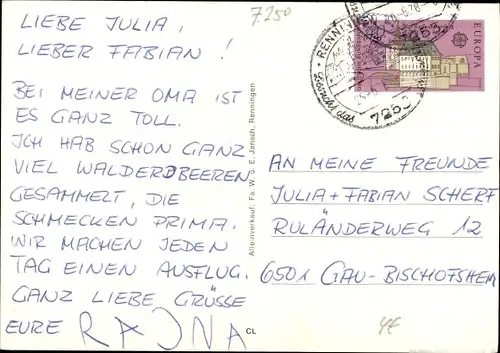 LIEBE JULIA,
LIEBER FABIAN!
BEI MEINER OMA IST
ES GANZ TOLL.
ICH HAB SCHON GANZ
VIEL WALDERDBEEREN
GESAMMELT, DIE
SCHMECKEN PRIMA.
WIR MACHEN JEDEN
TAG EINEN AUSFLUG.
GANZ LIEBE GRÜSSE
EURE RAJNA
7250
Alleinverkauf: Fa. W. u. E. Janisch, Renningen
CL
RENNINGEN
7253
7253
EUROPA
AN MEINE FREUNDE
JULIA + FABIAN SCHERF
RULÄNDERWEG 12
6501 GAU-BISCHOFSHEIM